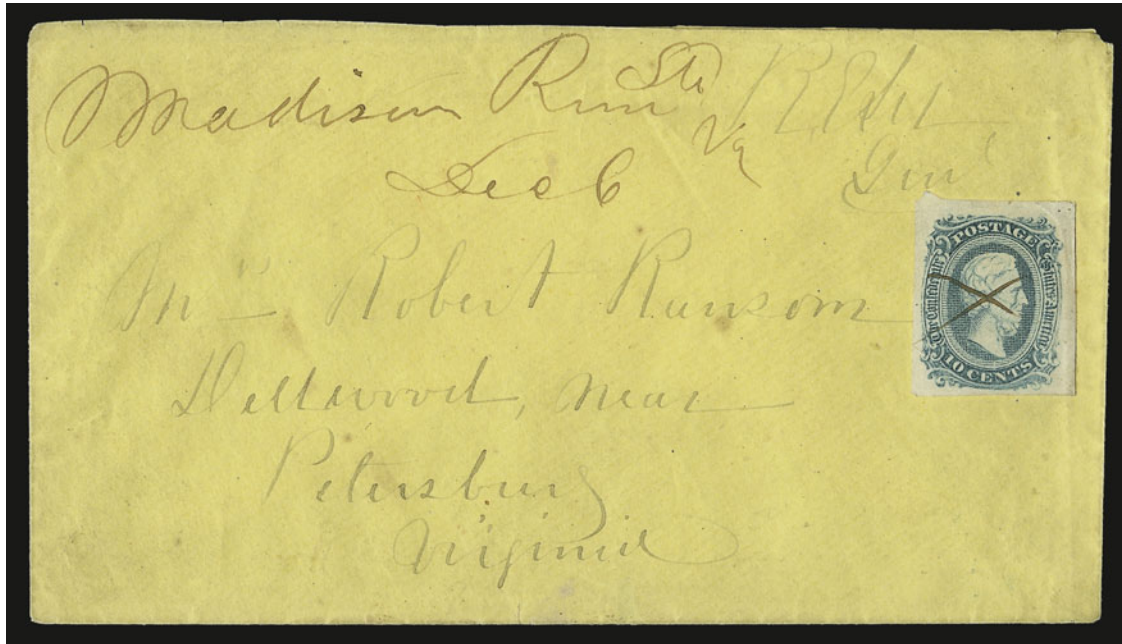 Madison Run Sta
Va
Dec 6
R E Lee
Genl
Mrs Robert Ransom
Dellwood, near
Petersburg
Virginia
POSTAGE
The Confederate States of America
10 CENTS